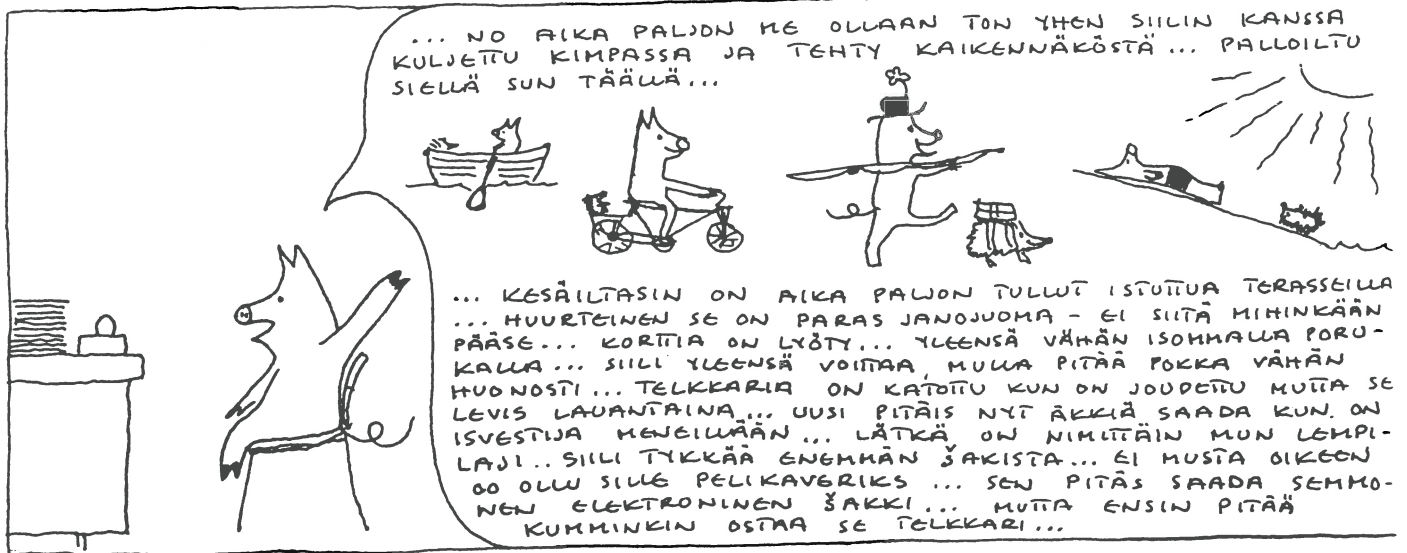 ... NO AIKA PALJON ME OLLAAN TON YHEN SIILIN KANSSA
KULJETTU KIMPASSA JA TEHTY KAIKENNÄKÖSTÄ... PALLOILTU
SIELLÄ SUN TÄÄLLÄ...
... KESÄILTASIN ON AIKA PALJON TULLUT ISTUTTUA TERASSEILLA
... HUURTEINEN SE ON PARAS JANOJUOMA - EI SIITÄ MIHINKÄÄN
PÄÄSE... KORTTIA ON LYÖTY... YLEENSÄ VÄHÄN ISOMMALLA PORU-
KALLA... SIILI YLEENSÄ VOITTAA, MULLA PITÄÄ POKKA VÄHÄN
HUONOSTI... TELKKARIA ON KATOTTU KUN ON JOUDETTU MUTTA SE
LEVIS LAUANTAINA... UUSI PITÄIS NYT ÄKKIÄ SAADA KUN ON
ISVESTIJA MENEILLÄÄN... LÄTKÄ ON NIMITTÄIN MUN LEMPI-
LAJI.. SIILI TYKKÄÄ ENEMMÄN ŠAKISTA... EI MUSTA OIKEEN
OO OLLU SILLE PELIKAVERIKS ... SEN PITÄS SAADA SEMMO-
NEN ELEKTRONINEN ŠAKKI... MUTTA ENSIN PITÄÄ
KUMMINKIN OSTAA SE TELKKARI...